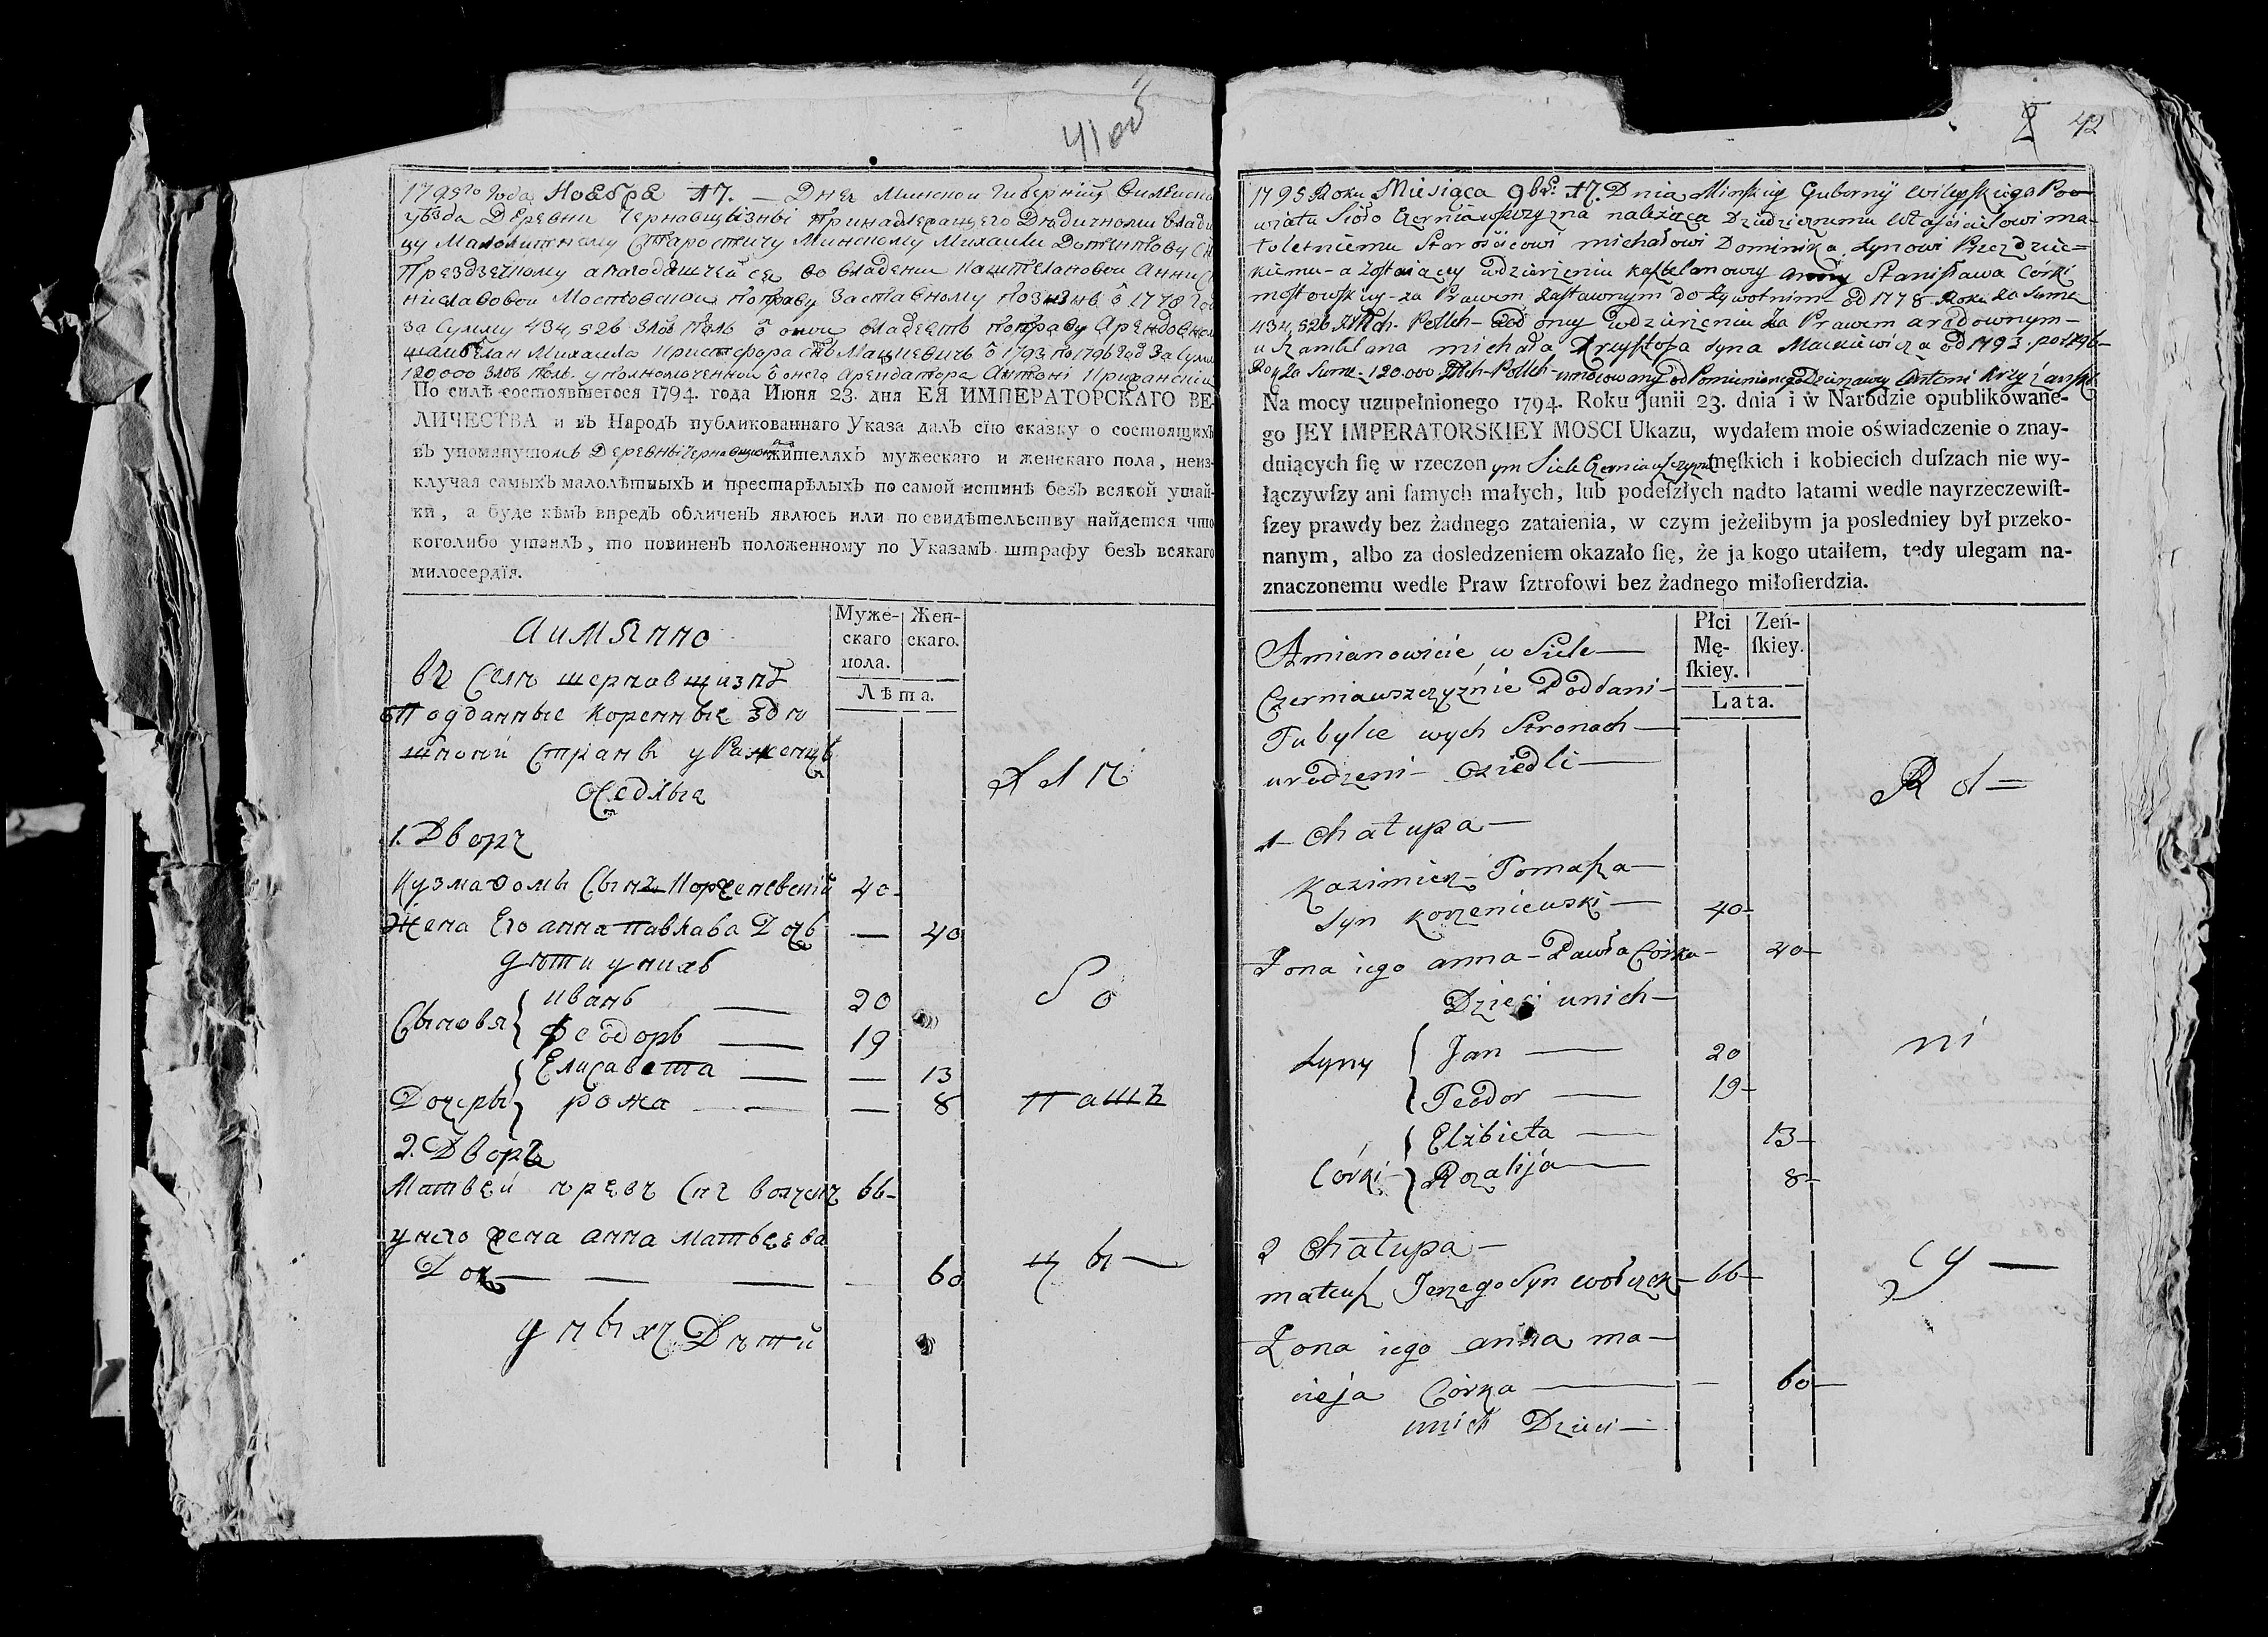 41 об
1795го Года Ноабра 17. — Дня Минской Губерніи
уѣзда Деревни Принадлежащего Дѣдичному
цу Малолѣтнему Старостичу Минскому Михаилу
Прездзечкому во владении Каштелановой Анни
ниславовой Мостовской по праву Заставному 1778
за Сумму 434,526 Злоб Поль владеетъ по праву Арендовно
Михаила Криштофора 1793 по 1796 год за Сум
120000 Злоб Поль Арендатора Антоні
По силѣ состоявшегося 1794. года Июня 23. дня ЕЯ ИМПЕРАТОРСКАГО ВЕ-
ЛИЧЕСТВА и въ Народъ публикованнаго Указа далъ сїю сказку о состоящихъ
въ упомянутомъ Деревны жителяхъ мужескаго и женскаго пола, неиз-
ключая самыхъ малолѣтныхъ и престарѣлыхъ по самой истинѣ безъ всякой утай-
ки, а буде кѣмъ впредъ обличенъ явлюсь или по свидѣтельству найдется что
коголибо утаилъ, то повиненъ положенному по Указамъ штрафу безъ всякаго
милосердїя.
Муже-скаго пола. Жен-скаго.
Лѣта.
Аимянно
въ Селѣ
Подданные коренные здѣ
шной страны уроженцы
оседлые
1. Дворъ
Кузма Фомы Сынъ Корженевскій 40
Жена Его анна павлава Дочь — 40
дѣти унихъ
Сыновя { иванъ — 20
Феодоръ — 19
Дочеры { Елисавета — — 13
рожа — — 8
2. Дворъ
Матвей Снъ 66
унего жена анна матвеева
Доч — — — 60
Дѣтй
Со
пашъ
2 42
1795 Roku Miesiąca 9bra 17. Dnia Minskiey Gubernij Wileyskiego Po-
wiatu Sioło Czerniawszczyzna należąca Dziedzicznemu Właścicielowi ma-
łoletniemu Starościcowi michałowi Dominika Synowi Przezdziec=
kiemu — a zostaiącey wdzierżeniu kasztelanowey anny Stanisława Córki
mostowskiey — za Prawem zastawnym dożywotnim od 1778 Roku za Sume
434,526 Złłch. Pollch — od oney wdzierżeniu za Prawem arędownym —
u Szambelana michała Krzysztofa syna Mackiewicza od 1793. po 1796 —
Rok za Sume — 120.000 Złłch — Pollch — umocowany od Pomienionego Dzierżawcy Antoni Krzyżanski
Na mocy uzupełnionego 1794. Roku Junii 23. dnia i w Narodzie opublikowane-
go JEY IMPERATORSKIEY MOSCI Ukazu, wydałem moie oświadczenie o znay-
duiących ſię w rzeczonym Siele Czerniawszczyznie męſkich i kobiecich duſzach nie wy-
łączywſzy ani ſamych małych, lub podeſzłych nadto latami wedle nayrzeczewiſt-
ſzey prawdy bez żadnego zataienia, w czym jeżelibym ja posledniey był przeko-
nanym, albo za dosledzeniem okazało ſię, że ja kogo utaiłem, tedy ulegam na-
znaczonemu wedle Praw ſztrofowi bez żadnego miłoſierdzia.
Płci Mę-ſkiey. Zeń-ſkiey.
Lata.
Amianowicie w Siele —
Czerniawszczyźnie Poddani —
Tubylcowych Stronach —
urodzeni — Osiedli —
1 — Chałupa —
Kazimierz — Tomasza —
Syn korzeniewski — 40 —
Żona iego anna — Pawła Córka — 40 —
Dzieci unich —
Syny { Jan — 20
Teodor — 19 —
Córki { Elżbieta — 13 —
Rozalija — 8 —
2 Chałupa —
mateusz Jerzego Syn wołczek — 66 —
Żona iego anna ma —
cieja Córka — — 60 —
unich Dzieci —
Ro
ni
cy —